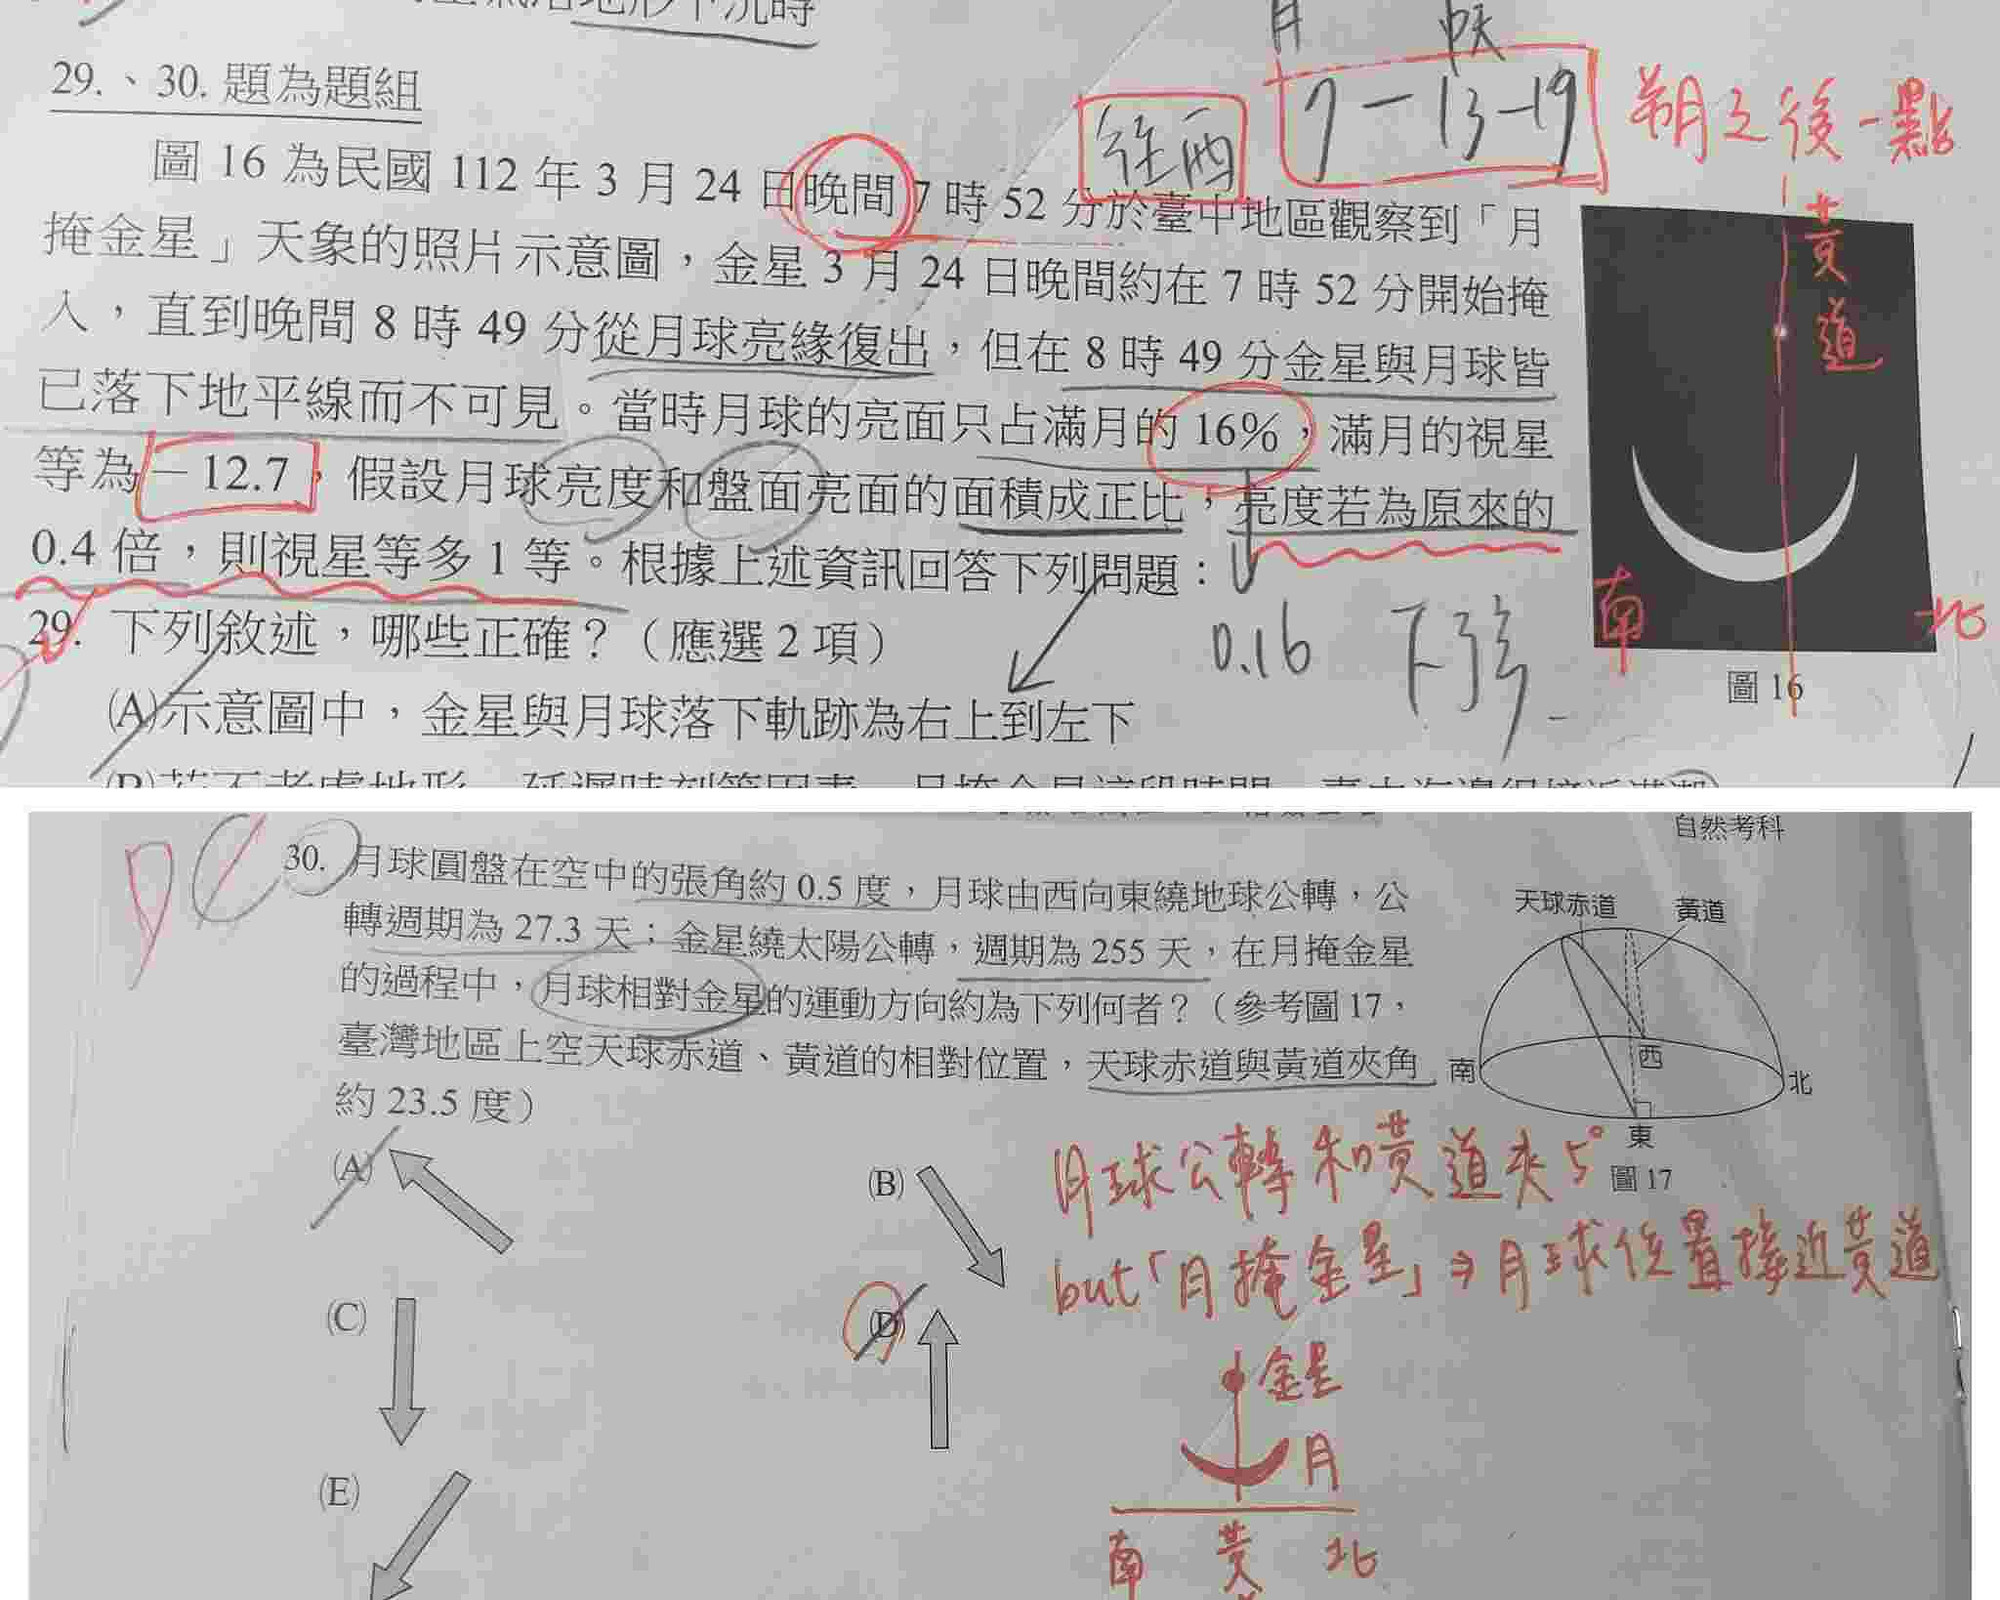 地形下沉時
29.、30. 題為題組
月
往西
7-13-19
朔之後一點
圖 16 為民國 112 年 3 月 24 日晚間 7 時 52 分於臺中地區觀察到「月
掩金星」天象的照片示意圖,金星 3 月 24 日晚間約在 7 時 52 分開始掩
入,直到晚間 8 時 49 分從月球亮緣復出,但在 8 時 49 分金星與月球皆
已落下地平線而不可見。當時月球的亮面只占滿月的 16%,滿月的視星
等為-12.7,假設月球亮度和盤面亮面的面積成正比,亮度若為原來的
0.4 倍,則視星等多 1 等。根據上述資訊回答下列問題:
黃道
南
北
圖 16
0.16
下弦
29. 下列敘述,哪些正確?(應選 2 項)
(A)示意圖中,金星與月球落下軌跡為右上到左下
(B)若不考慮地形、延遲時刻等因素,月掩金星這段時間,臺中海邊很接近滿潮
自然考科
D
30. 月球圓盤在空中的張角約 0.5 度,月球由西向東繞地球公轉,公
轉週期為 27.3 天;金星繞太陽公轉,週期為 255 天,在月掩金星
的過程中,月球相對金星的運動方向約為下列何者?(參考圖 17,
臺灣地區上空天球赤道、黃道的相對位置,天球赤道與黃道夾角
約 23.5 度)
天球赤道
黃道
南
西
北
東
圖 17
(A)
(B)
(C)
(D)
(E)
月球公轉和黃道夾5°
but「月掩金星」⇒月球位置接近黃道
金星
月
南
黃
北